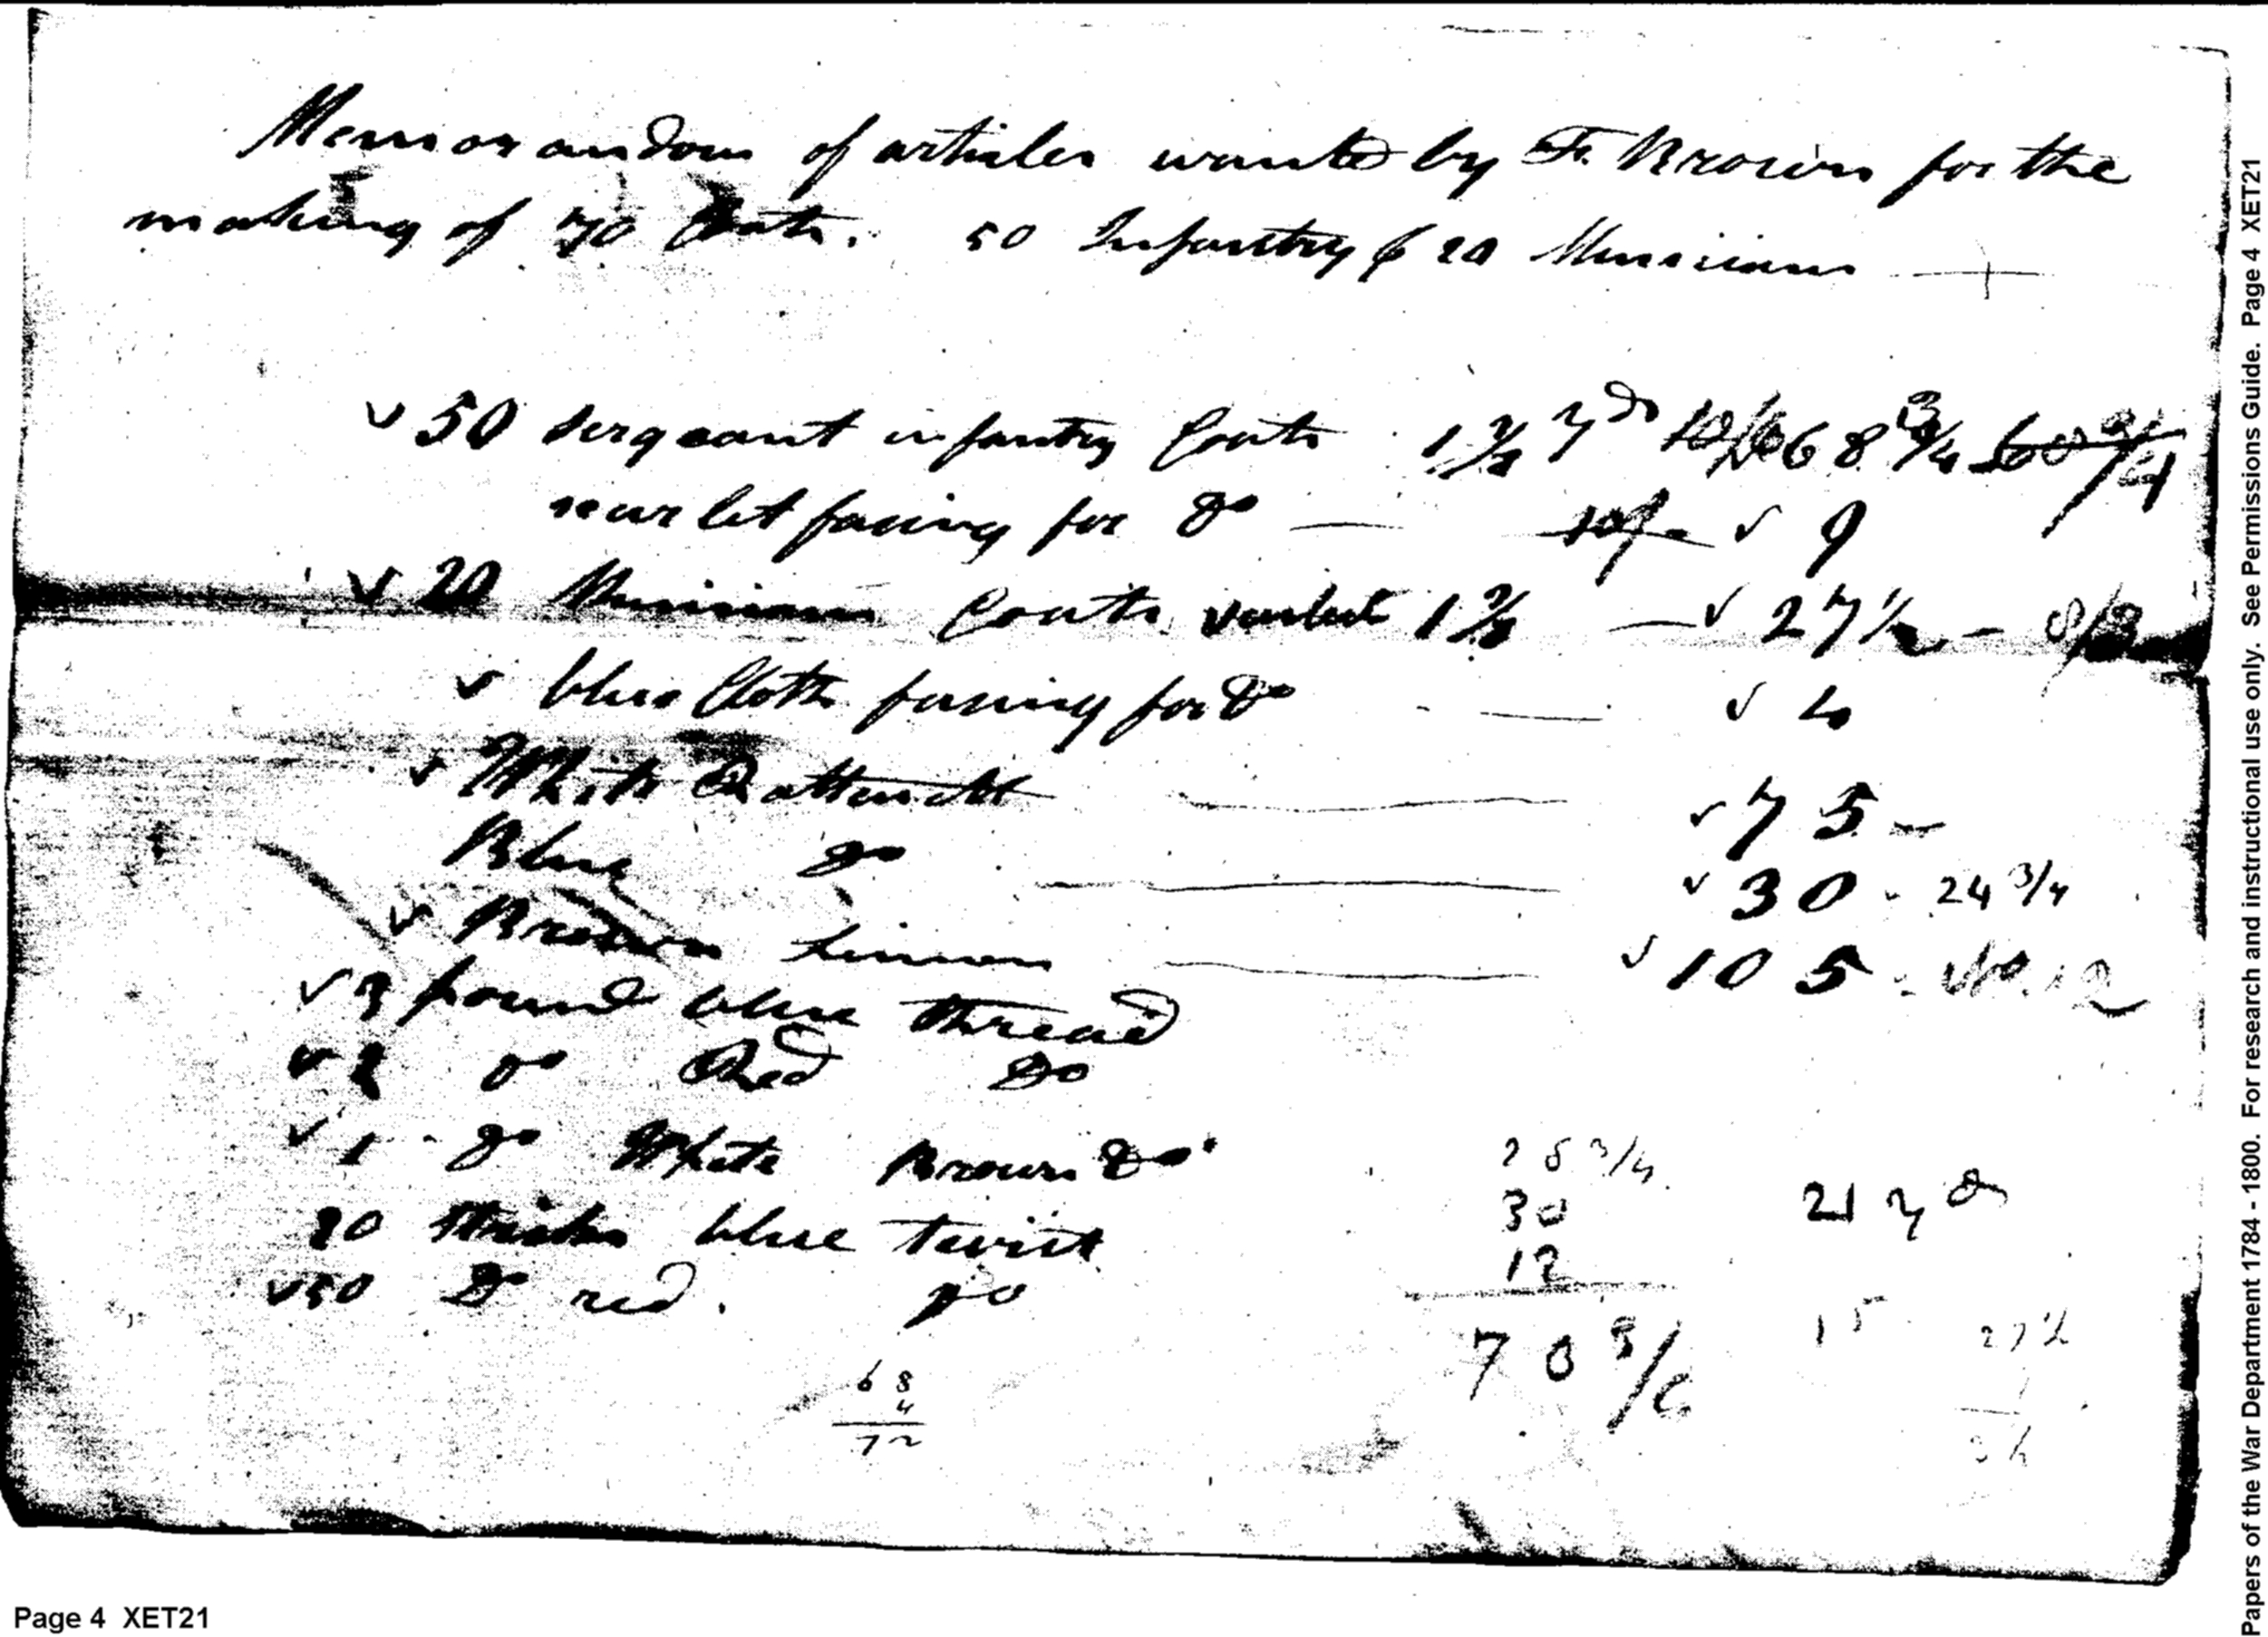 Memorandom of articles wanted by F. Brown for the
making of 70 Coats. 50 Infantry & 20 Musicians
✓ 50 sergeant infantry Coats 1 3/8 yd 68 3/4
scarlet facing for do — ✓ 9
✓ 20 Musicians Coats scarlet 1 3/8 — ✓ 27 1/2 -
✓ blue Cloth facing for do — ✓ 4
✓ White Rattenett — ✓ 75 -
Blue do — ✓ 30 - 24 3/4
✓ Brown Linnen — ✓ 105 -
✓ 3 pound blue thread
✓ 2 do Red Do
✓ 1 - do White Brown Do
28 3/4
30
12
70 3/4
21 yd
20 Sticks blue twist
✓ 50 Do red. do
15
27 1/2
68
4
72
Page 4 XET21
Papers of the War Department 1784 - 1800. For research and instructional use only. See Permissions Guide. Page 4 XET21